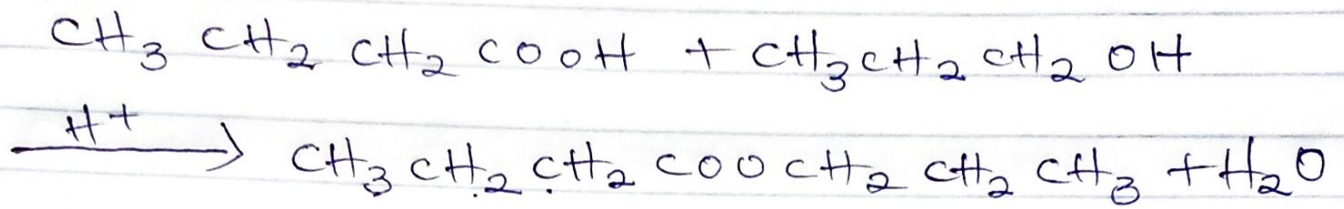 CH₃ CH₂ CH₂ COOH + CH₃CH₂CH₂OH
H⁺
⟶ CH₃CH₂CH₂COOCH₂CH₂CH₃ + H₂O